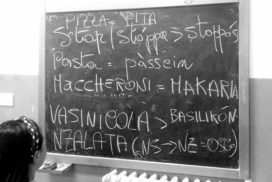 PIZZA = PITTA
Stop / stóppa > stoppós
Pasta = passein
MACCHERONI = MAKARIA
VASINICOLA > BASILIKÓN
NZALATA (NS => NZ = OSC)